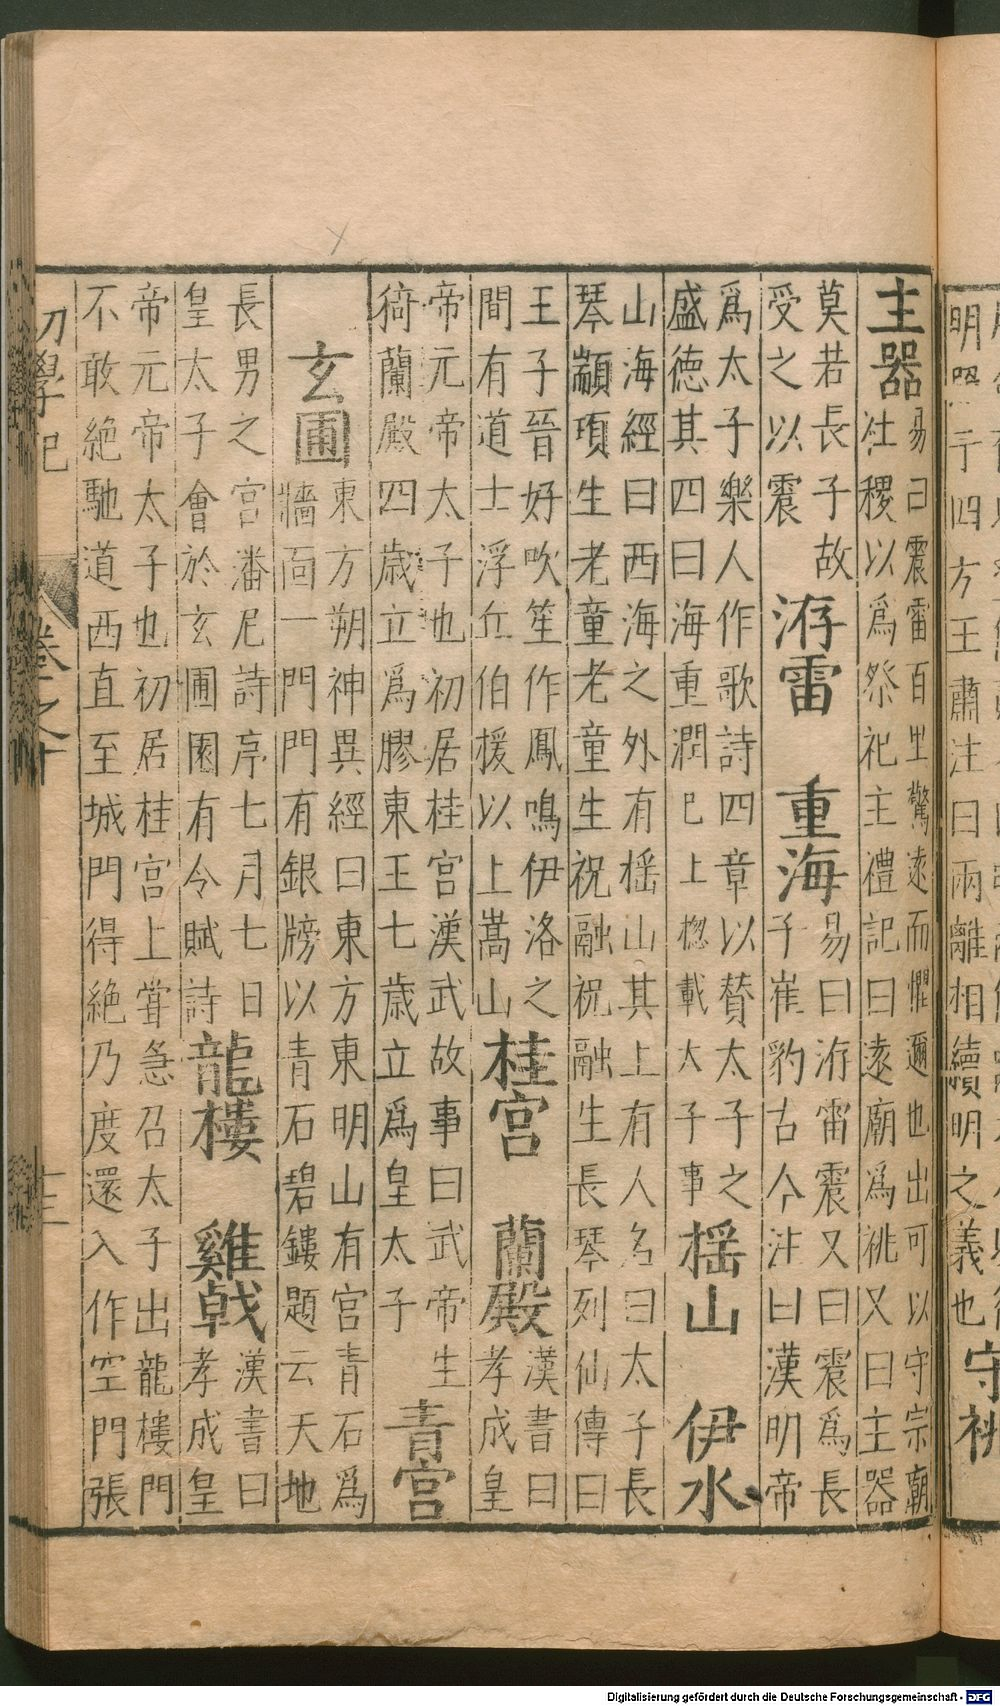 明照于四方王肅注曰兩離相續明之義也守祧
主器易曰震雷百里驚遠而懼邇也出可以守宗廟
社稷以爲祭祀主禮記曰遠廟爲祧又曰主器
莫若長子故洊雷 重海易曰洊雷震又曰震爲長
受之以震子崔豹古今注曰漢明帝
爲太子樂人作歌詩四章以賛太子之
盛德其四曰海重潤巳上惣載太子事揺山 伊水
山海經曰西海之外有揺山其上有人名曰太子長
琴顓頊生老童老童生祝融祝融生長琴列仙傳曰
王子晉好吹笙作鳳鳴伊洛之
間有道士浮丘伯援以上嵩山桂宮 蘭殿漢書曰
孝成皇
帝元帝太子也初居桂宮漢武故事曰武帝生
猗蘭殿四歲立爲膠東王七歲立爲皇太子青宮
玄圃東方朔神異經曰東方東明山有宮青石爲
牆面一門門有銀牓以青石碧鏤題云天地
長男之宮潘尼詩序七月七日
皇太子會於玄圃園有令賦詩龍樓 雞戟漢書曰
孝成皇
帝元帝太子也初居桂宮上甞急召太子出龍樓門
不敢絶馳道西直至城門得絶乃度還入作空門張
初學記 卷之十 十三
Digitalisierung gefördert durch die Deutsche Forschungsgemeinschaft - DFG